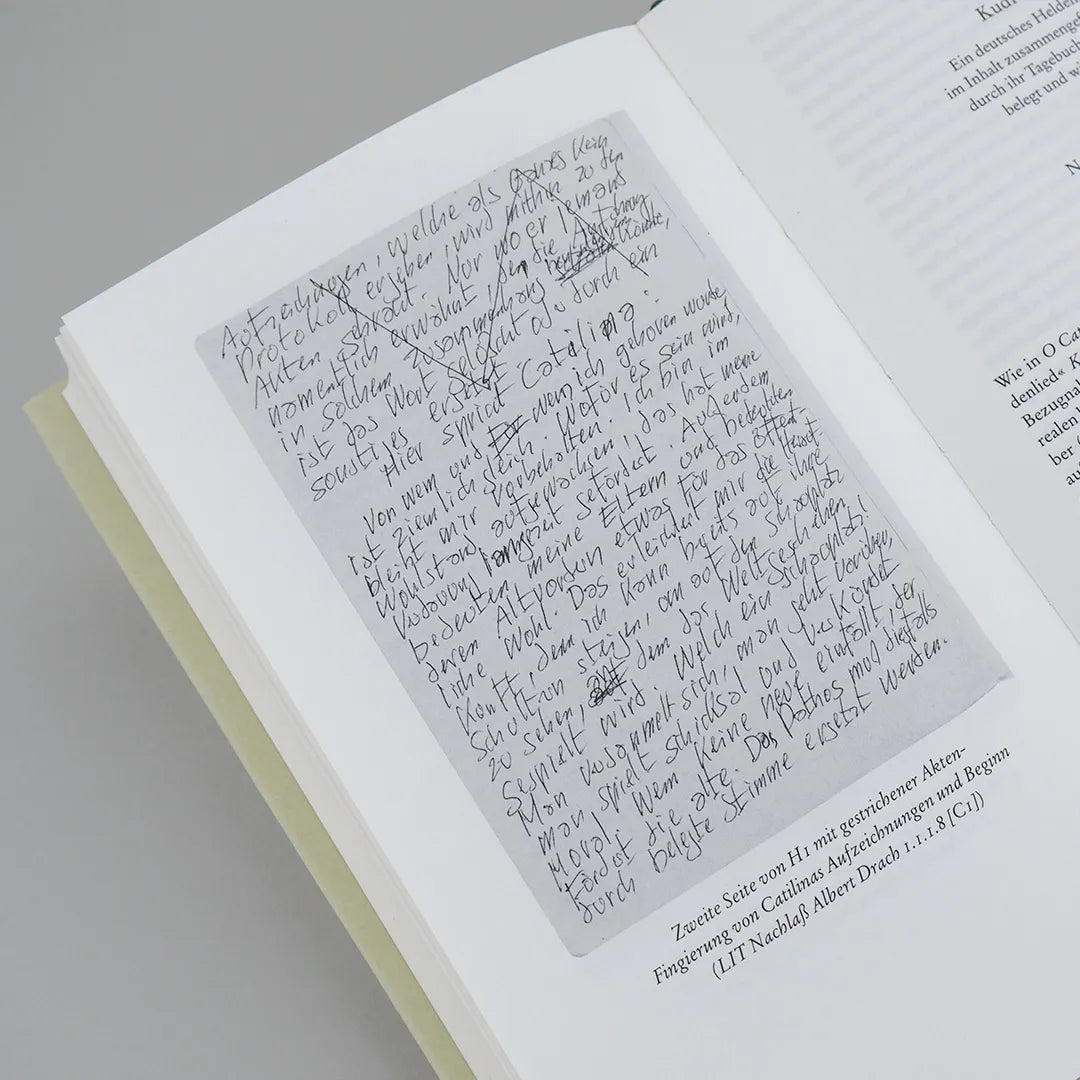 Aufzeichnungen, welche als Ganzes kein
Protokoll ergeben, wird mithin zu den
Akten schrott. Nur wo er jemand
namentlich erwähnt, den die Forschung
in solchem Zusammenhang könnte,
ist das Wort gelöscht also durch ein
sonstiges ersetzt
Hier spricht Catilina:
Von wem und wem ich geboren wurde,
ist ziemlich gleich. Wofür es sein wird,
bleibt mir vorbehalten. Ich bin im
Wohlstand aufgewachsen, das hat meine
langezeit gefördert. Außerdem
bedeuten meine Eltern und bedeuteten
deren Altvordern etwas für das öffent-
liche Wohl. Das erleichtert mir die
denn ich kann bereits auf ihre
Schultern steigen, um auf den Schauplatz
zu sehen, auf dem das Weltgeschehen
gespielt wird. Welch ein Schauplatz!
Man versammelt sich, man geht vorüber,
man spielt Schicksal und verkündet
Moral. Wem keine neue einfällt, der
fördert die alte. Das Pathos muß diesfalls
durch belegte Stimme ersetzt werden.
Zweite Seite von H1 mit gestrichener Akten-
Fingierung von Catilinas Aufzeichnungen und Beginn
(LIT Nachlaß Albert Drach 1.1.1.8 [C1])
Ein deutsches Helden
im Inhalt zusammengef
durch ihr Tagebuch
belegt und wi
Wie in O Ca
denlied« K
Bezugna
realen
ber
au